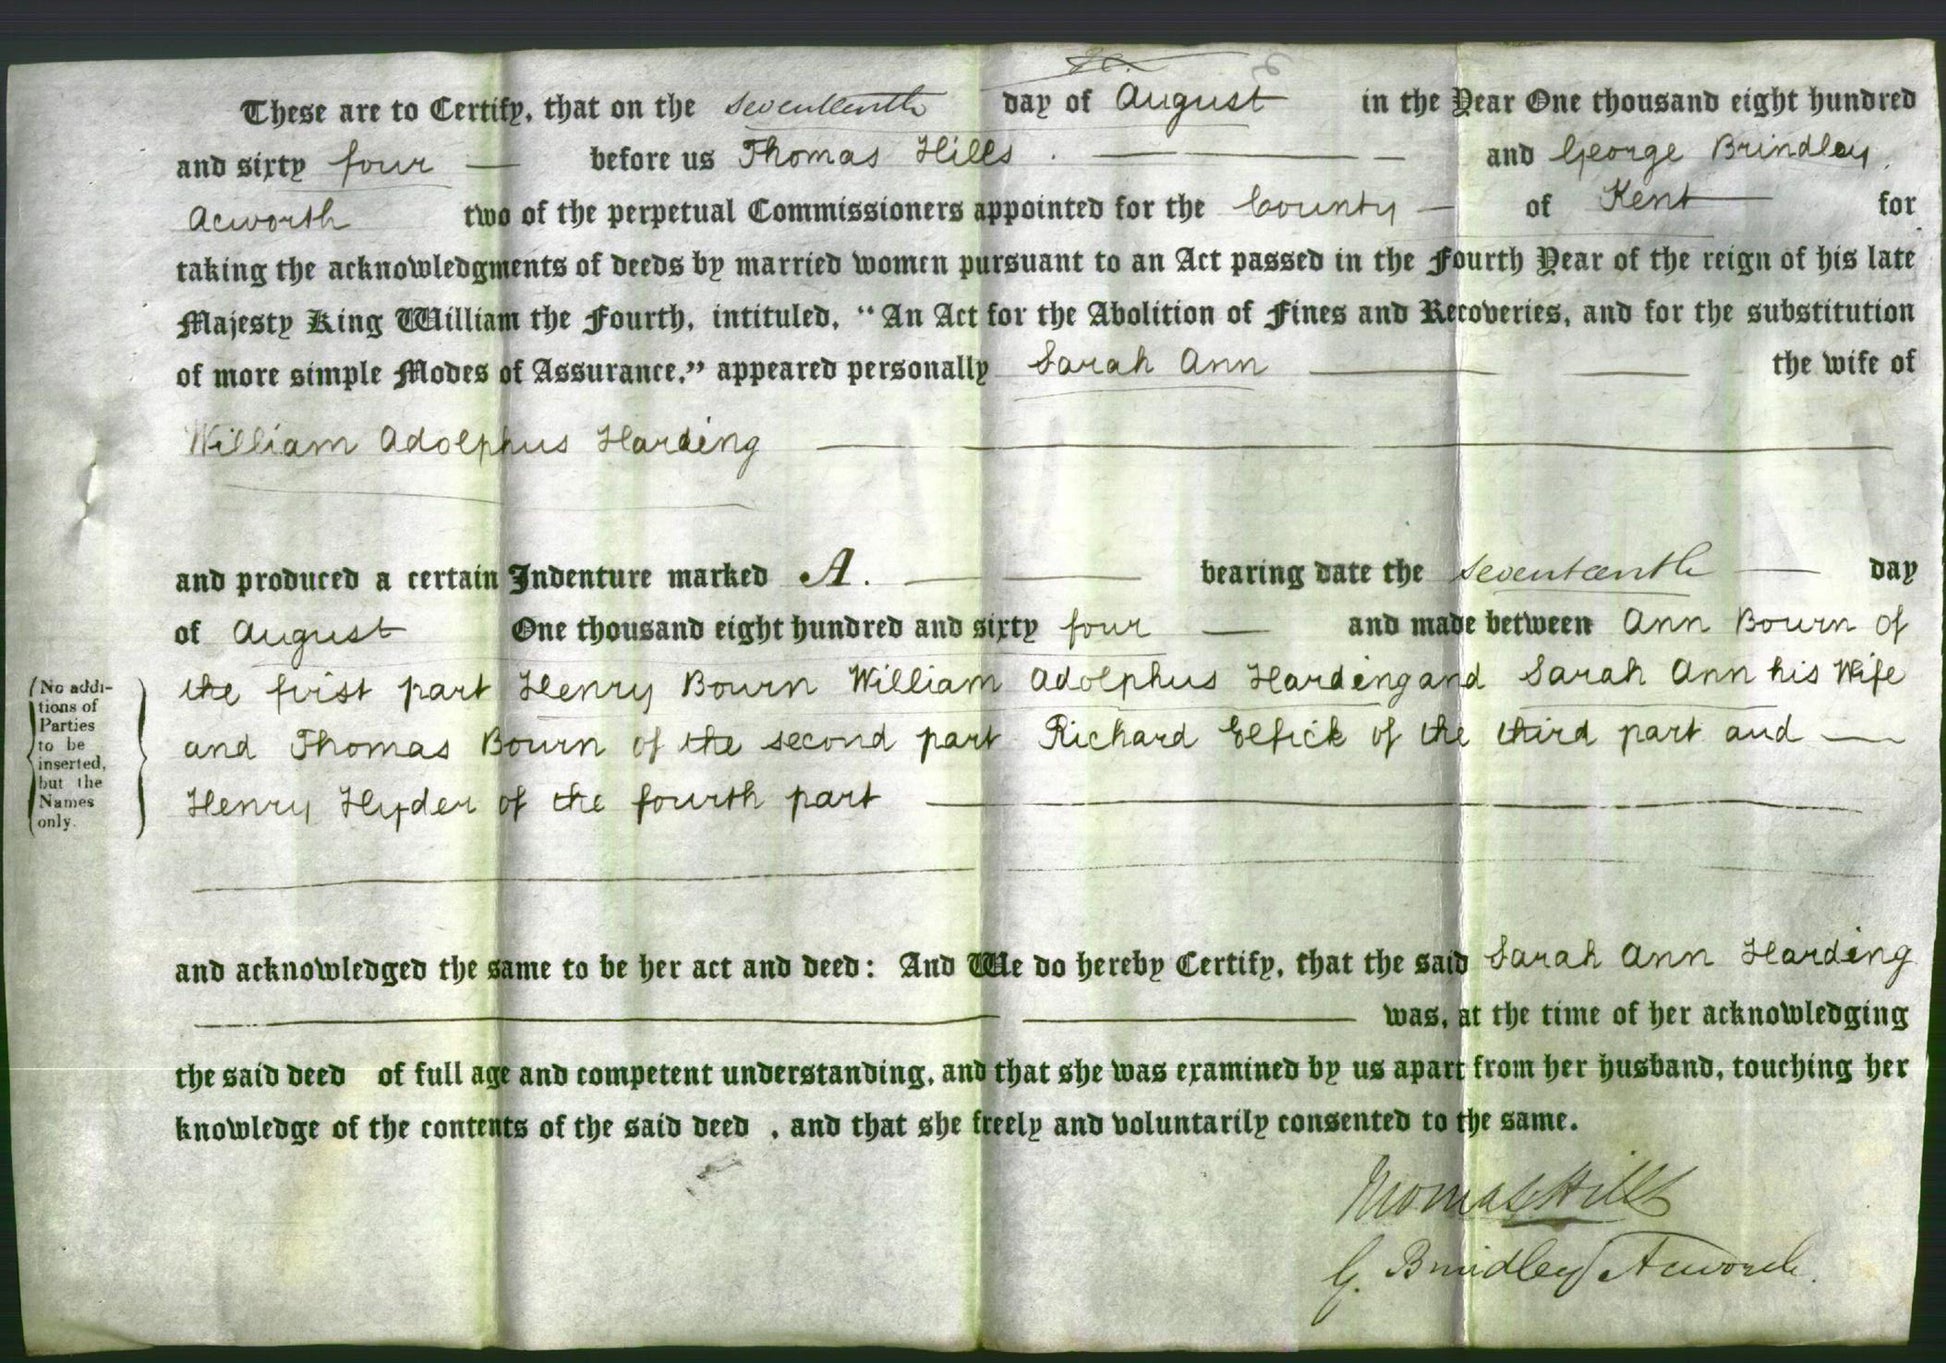 These are to Certify, that on the seventeenth day of August in the Year One thousand eight hundred
and sixty four before us Thomas Hills. and George Brindley
Acworth two of the perpetual Commissioners appointed for the County of Kent for
taking the acknowledgments of deeds by married women pursuant to an Act passed in the Fourth Year of the reign of his late
Majesty King William the Fourth, intituled, "An Act for the Abolition of Fines and Recoveries, and for the substitution
of more simple Modes of Assurance," appeared personally Sarah Ann the wife of
William Adolphus Harding
and produced a certain Indenture marked A. bearing date the seventeenth day
of August One thousand eight hundred and sixty four and made between Ann Bourn of
the first part Henry Bourn William Adolphus Harding and Sarah Ann his Wife
and Thomas Bourn of the second part Richard Elfick of the third part and
Henry Hyder of the fourth part
No addi-
tions of
Parties
to be
inserted,
but the
Names
only.
and acknowledged the same to be her act and deed: And We do hereby Certify, that the said Sarah Ann Harding
was, at the time of her acknowledging
the said deed of full age and competent understanding, and that she was examined by us apart from her husband, touching her
knowledge of the contents of the said deed , and that she freely and voluntarily consented to the same.
Thomas Hills
G. Brindley Acworth.